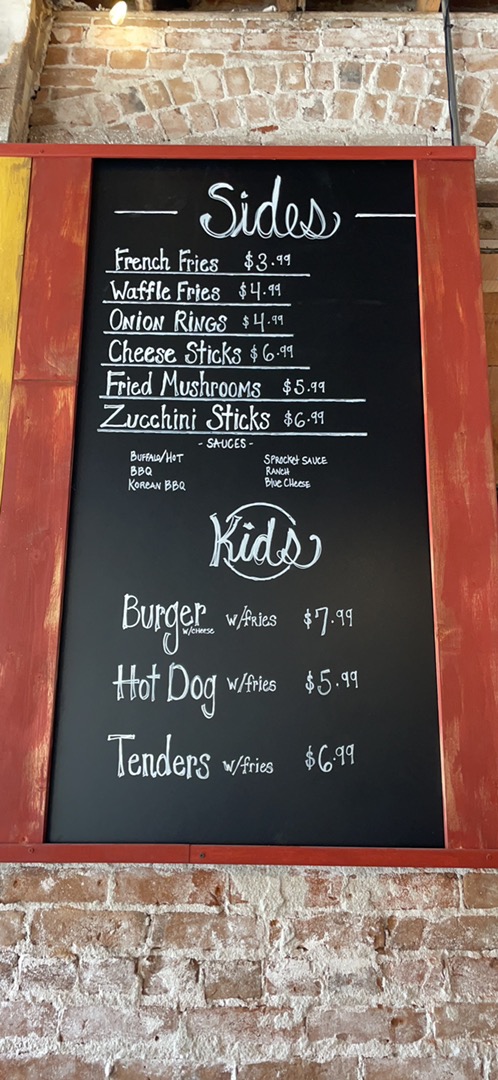 Sides
French Fries $3.99
Waffle Fries $4.99
Onion Rings $4.99
Cheese Sticks $6.99
Fried Mushrooms $5.99
Zucchini Sticks $6.99
- SAUCES -
Buffalo/Hot Sprocket Sauce
BBQ Ranch
Korean BBQ Blue Cheese
Kids
Burger w/cheese w/fries $7.99
Hot Dog w/fries $5.99
Tenders w/fries $6.99